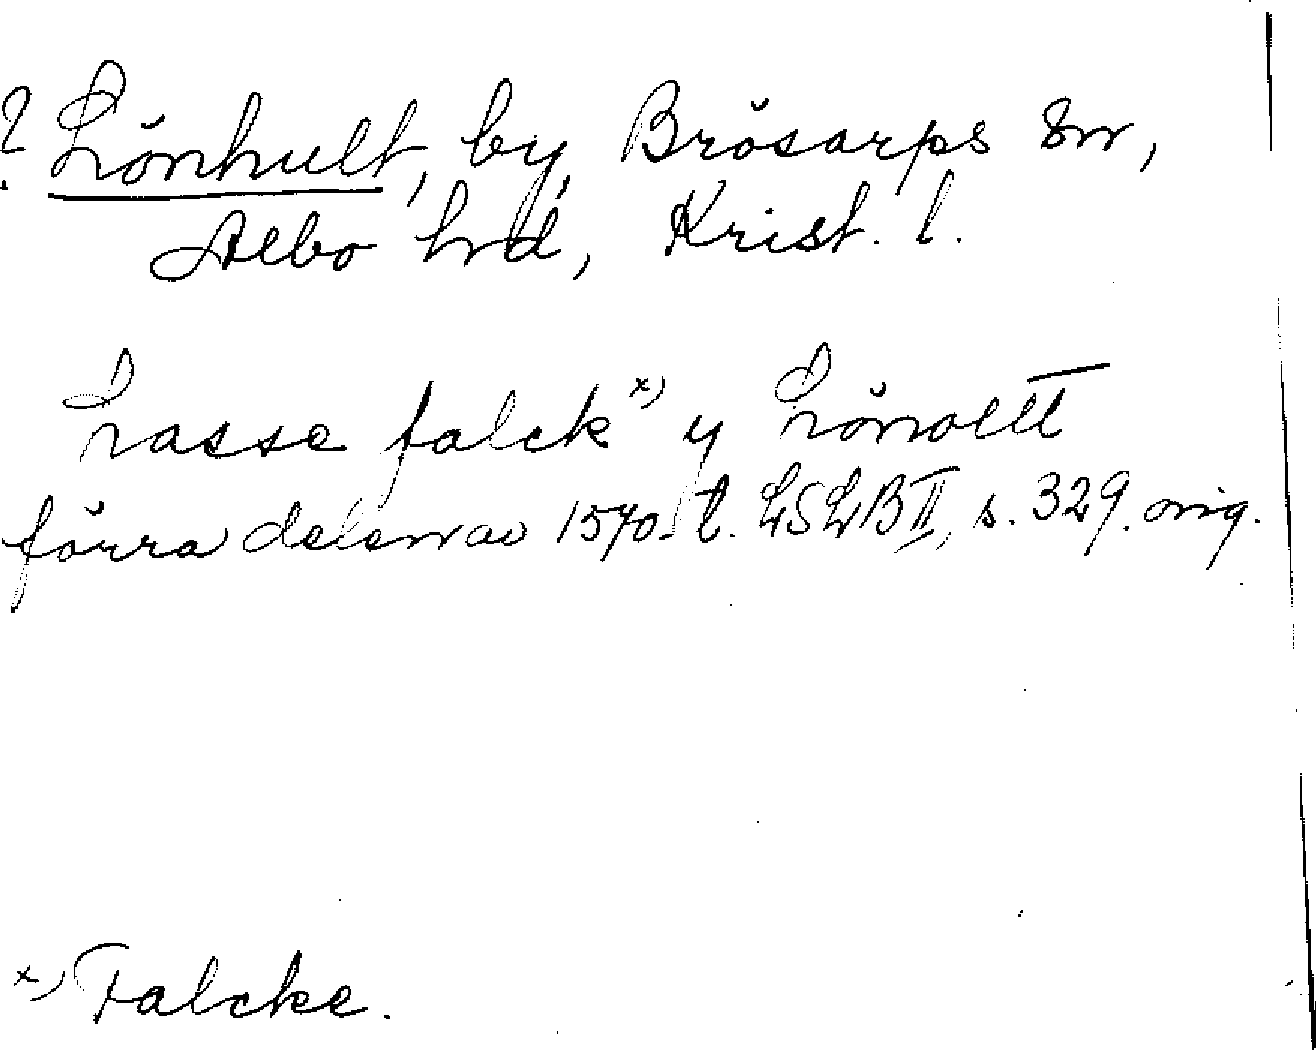 ? Lönhult, by, Brösarps sn,
Albo hd, Krist. l.
Lasse falck x) y Lönoltt
förra delen av 1570-t. LSLB II, s. 329. orig.
x) Falcke.